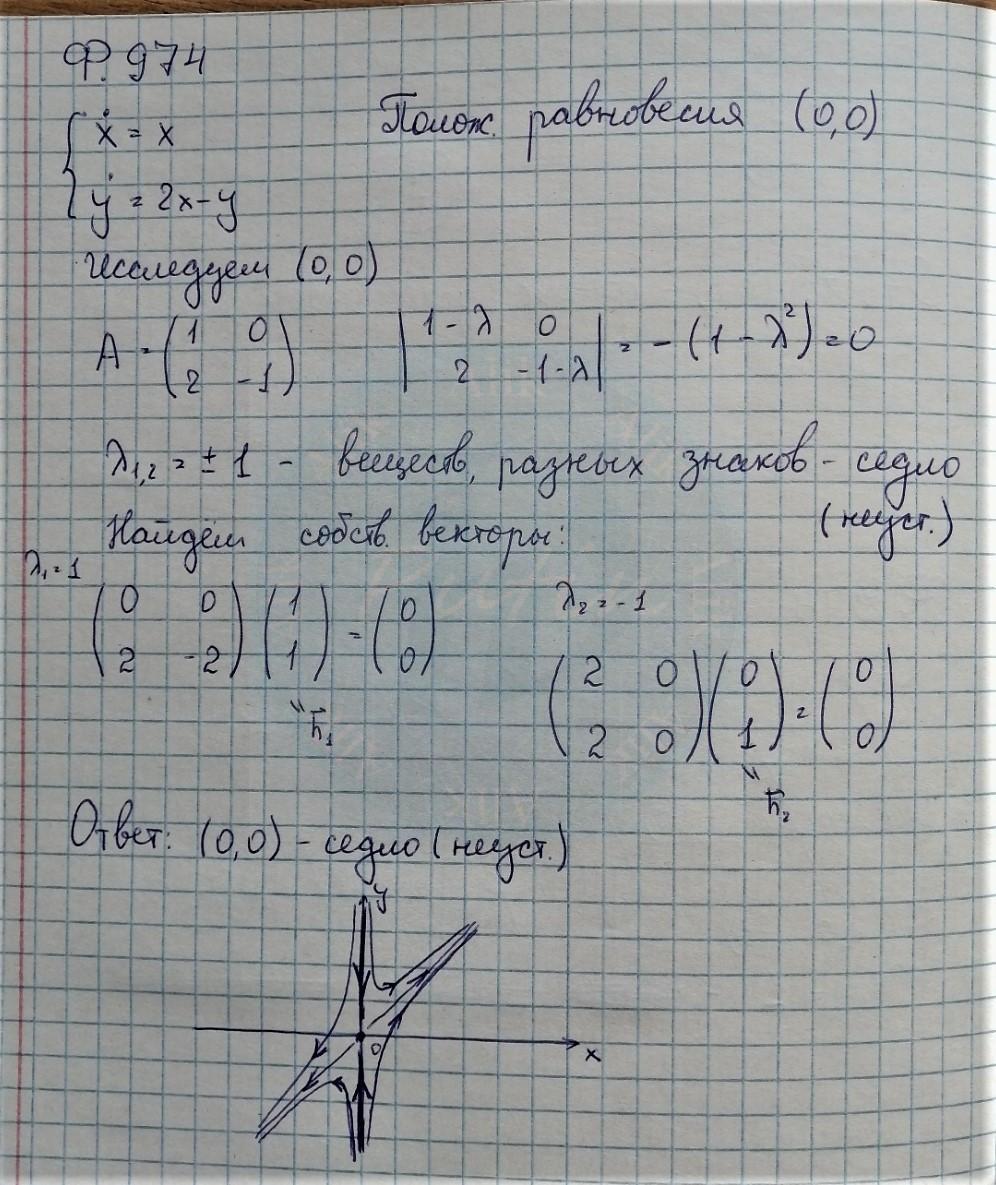 Ф. 974
{ ẋ = x
ẏ = 2x-y
Полож. равновесия (0,0)
Исследуем (0,0)
A = (1 0
2 -1)
|1-λ 0
2 -1-λ| = -(1-λ²) = 0
λ₁,₂ = ±1 - веществ, разных знаков - седло
(неуст.)
Найдём собств. векторы:
λ₁=1
(0 0
2 -2) (1
1) = (0
0)
h̄₁
λ₂=-1
(2 0
2 0) (0
1) = (0
0)
h̄₂
Ответ: (0,0) - седло (неуст.)
y
0
x